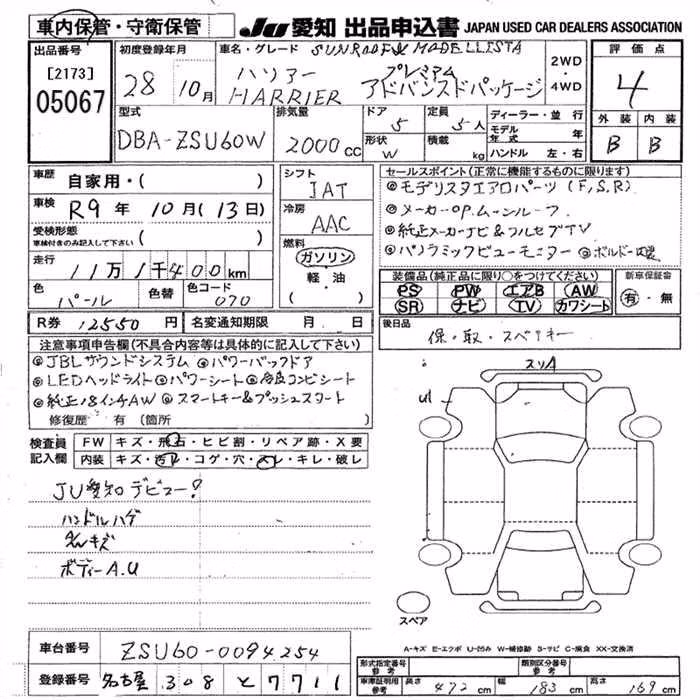 車内保管・守衛保管 JU 愛知 出品申込書 JAPAN USED CAR DEALERS ASSOCIATION
出品番号 [2173] 05067
初度登録年月 28 10月
車名・グレード SUNROOF MODELLISTA
ハリアー HARRIER プレミアム アドバンスドパッケージ
2WD・4WD
評価点 4
外装 内装
B B
型式 DBA-ZSU60W
排気量 2000cc
ドア 5
形状 W
定員 5人
積載 kg
ディーラー・並行
モデル年式 年
ハンドル 左・右
車歴 自家用・( )
車検 R9年 10月(13日)
受検形態 車検付きのみ記入して下さい ( )
走行 11万1千400km
色 パール 色替 色コード 070
シフト IAT
冷房 AAC
燃料 ガソリン・軽・油
セールスポイント(正常に機能するものに限ります)
◎モデリスタエアロパーツ(F,S,R)
◎メーカーOP.ムーンルーフ
◎純正メーカーナビ&フルセグTV
◎パノラミックビューモニター ◎ボルドー内装
装備品(純正品に限り○をつけてください)
PS PW エアB AW
SR ナビ TV カワシート
新車保証書 有・無
R券 12550円 名変通知期限 月 日
後日品 保・取・スペアキー
注意事項申告欄(不具合内容等は具体的に記入して下さい)
◎JBLサウンドシステム ◎パワーバックドア
◎LEDヘッドライト ◎パワーシート ◎合皮コンビシート
◎純正18インチAW ◎スマートキー&プッシュスタート
修復歴 有 (箇所
検査員記入欄
FW キズ・飛石・ヒビ割・リペア跡・X要
内装 キズ・汚レ・コゲ・穴・スレ・キレ・破レ
JU愛知デビュー!
ハンドルハゲ
キズ
ボディーA.U
スリA
U1
スペア
A-キズ E-エクボ U-凹み W-補修跡 S-サビ C-腐食 XX-交換済
車台番号 ZSU60-0094254
登録番号 名古屋 308 と 7711
形式指定番号 参考
類別区分番号 参考
車庫証明用 参考 長さ 472cm 幅 183cm 高さ 169cm